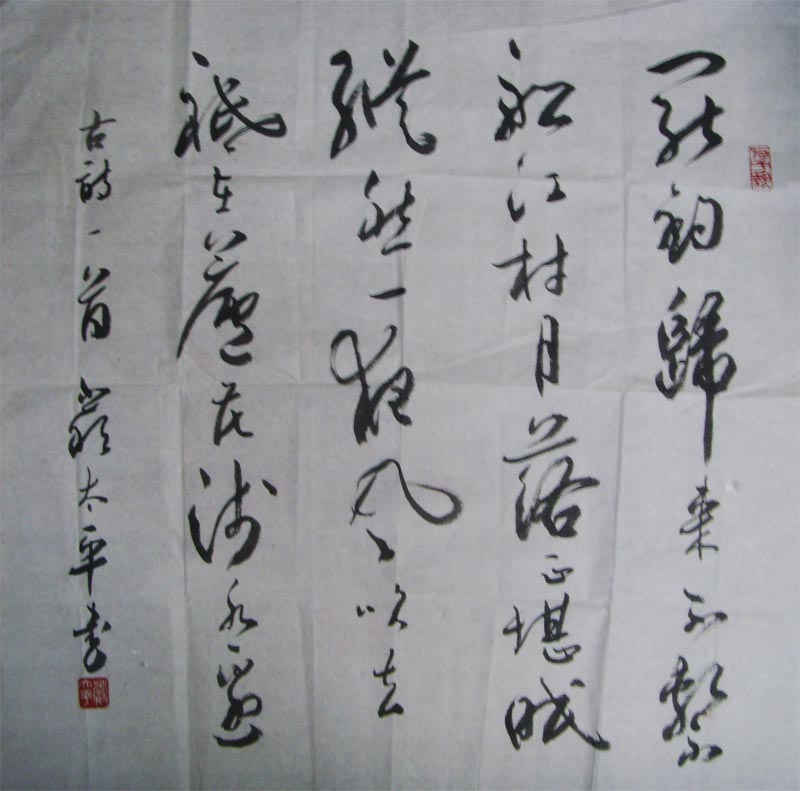 罷釣歸來不繫
船江村月落正堪眠
縱然一夜風吹去
祗在蘆花淺水邊
古詩一首 嚴太平書